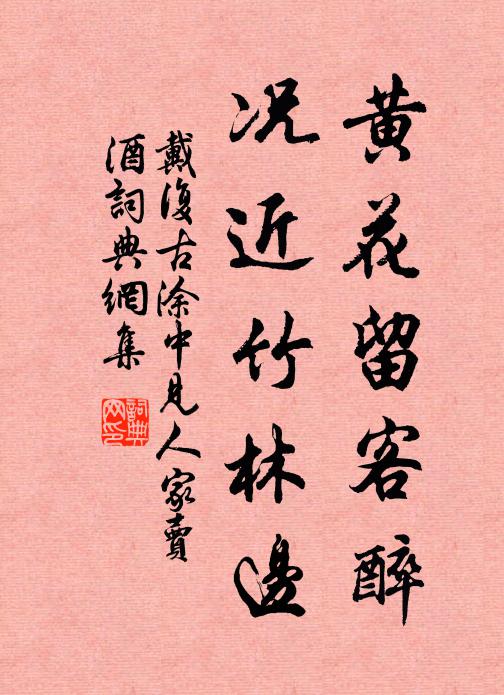 黄花留客醉
况近竹林邊
戴復古涂中見人家賣
酒詞典網集
詞典
网印